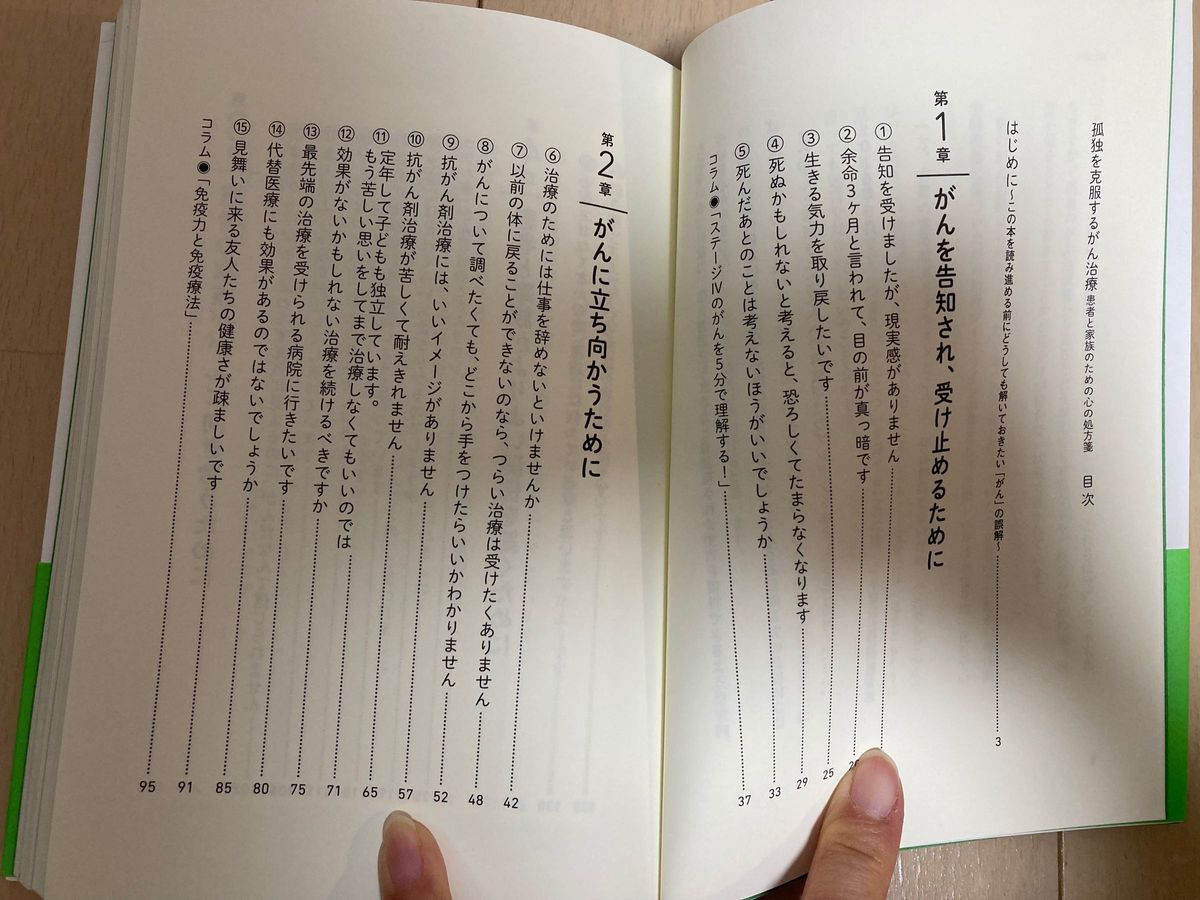 孤独を克服するがん治療 患者と家族のための心の処方箋 目次
はじめに～この本を読み進める前にどうしても解いておきたい「がん」の誤解～ 3
第1章 がんを告知され、受け止めるために
① 告知を受けましたが、現実感がありません
② 余命3ヶ月と言われて、目の前が真っ暗です
③ 生きる気力を取り戻したいです 25
④ 死ぬかもしれないと考えると、恐ろしくてたまらなくなります 29
⑤ 死んだあとのことは考えないほうがいいでしょうか 33
コラム◉「ステージⅣのがんを5分で理解する！」 37
第2章 がんに立ち向かうために
⑥ 治療のためには仕事を辞めないといけませんか 42
⑦ 以前の体に戻ることができないのなら、つらい治療は受けたくありません 48
⑧ がんについて調べたくても、どこから手をつけたらいいかわかりません 52
⑨ 抗がん剤治療には、いいイメージがありません 57
⑩ 抗がん剤治療が苦しくて耐えきれません 65
⑪ 定年して子どもも独立しています。
もう苦しい思いをしてまで治療しなくてもいいのでは 71
⑫ 効果がないかもしれない治療を続けるべきですか 75
⑬ 最先端の治療を受けられる病院に行きたいです 80
⑭ 代替医療にも効果があるのではないでしょうか 85
⑮ 見舞いに来る友人たちの健康さが疎ましいです 91
コラム◉「免疫力と免疫療法」 95